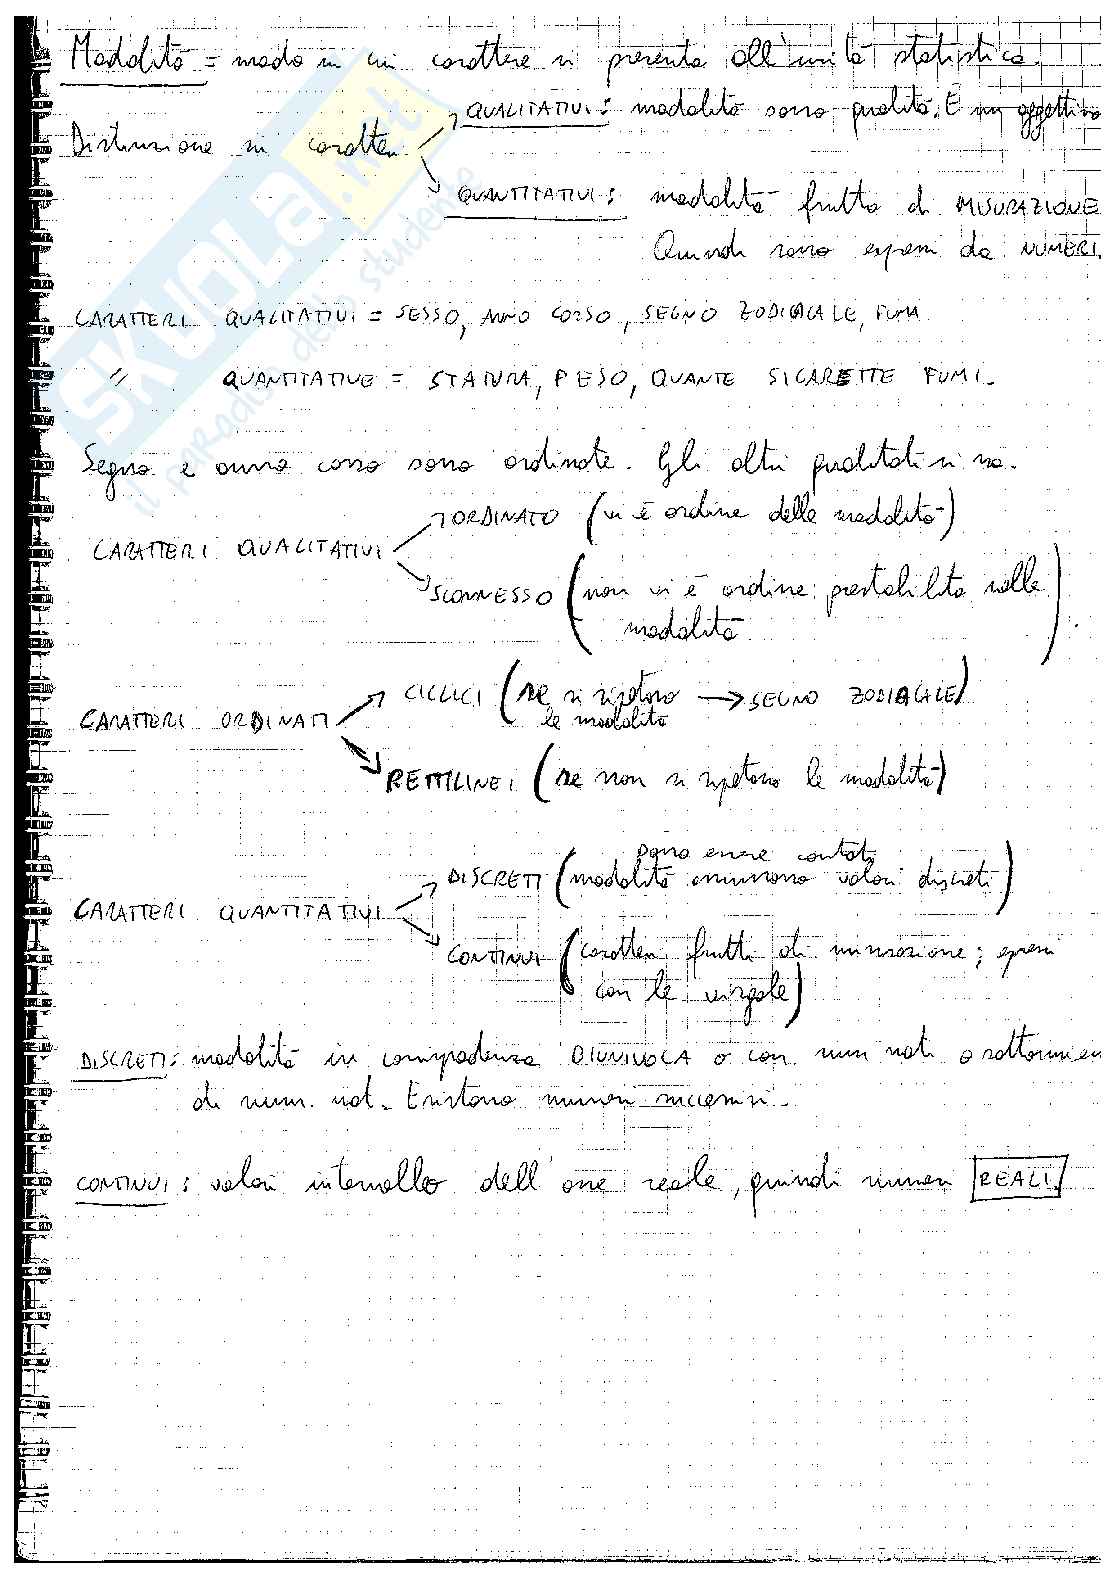 Modalità = modo in cui carattere si presenta all'unità statistica.
Distinzione in caratteri
QUALITATIVI: modalità sono qualità. È un aggettivo
QUANTITATIVI: modalità frutto di MISURAZIONE
Quindi sono espressi da NUMERI.
CARATTERI QUALITATIVI = SESSO, ANNO CORSO, SEGNO ZODIACALE, FUMA
" QUANTITATIVE = STATURA, PESO, QUANTE SIGARETTE FUMI.
Segno e anno corso sono ordinate. Gli altri qualitativi no.
CARATTERI QUALITATIVI
ORDINATO (vi è ordine delle modalità)
SCONNESSO (non vi è ordine prestabilito nelle
modalità)
CARATTERI ORDINATI
CICLICI (se si ripetono → SEGNO ZODIACALE)
le modalità
RETTILINEI (se non si ripetono le modalità)
CARATTERI QUANTITATIVI
possono essere contati
DISCRETI (modalità assumono valori discreti)
CONTINUI (caratteri frutti di misurazione; espressi
con le virgole)
DISCRETI: modalità in corrispondenza BIUNIVOCA o con num nat. o sottoinsiemi
di num. nat. Esistono numeri successivi.
CONTINUI: valori intervallo dell'asse reale, quindi numeri REALI
SKUOLA.it
il paradiso dello studente